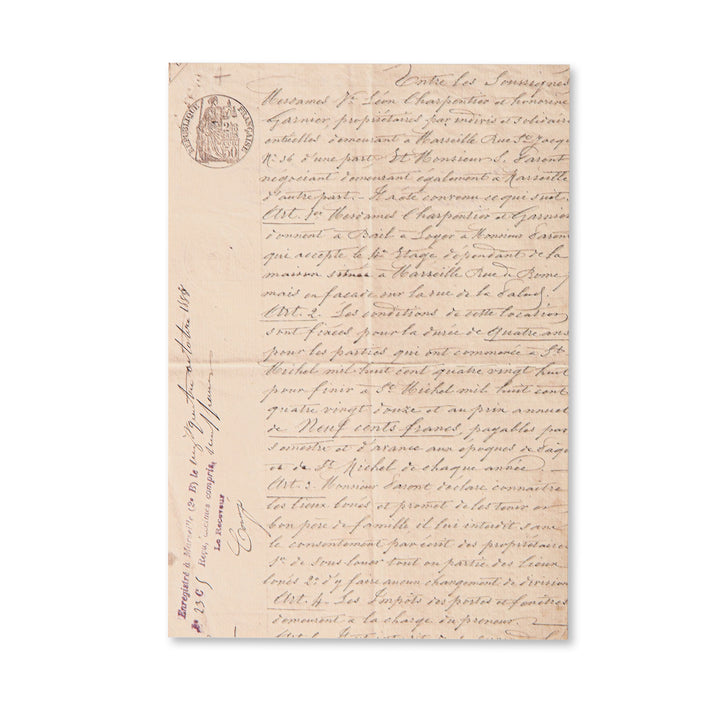 RÉPUBLIQUE FRANÇAISE
Entre les Soussignés
Mesdames Vve Léon Charpentier et honorine
Garnier, propriétaires, par indivis et solidaire
entielles demeurant à Marseille Rue St Jacque
No 36 d'une part, Et Monsieur S. Saront
negociant demeurant également à Marseille
d'autre part. Il a été convenu ce qui suit.
Art. 1er Mesdames Charpentier et Garnier
donnent à Bail à Loyer à Monsieur Saront
qui accepte le 4e Etage dépendant de la
maison située à Marseille Rue de Rome,
mais en facade sur la rue de la Palud.
Art. 2. Les conditions de cette location
sont fixées pour la durée de Quatre ans
pour les parties qui ont commencé à St
Michel mil huit cent quatre vingt huit
pour finir à St Michel mil huit cent
quatre vingt douze et au prix annuel
de Neuf cents francs, payables par
semestre et d'avance aux époques de Pâqu
et de St Michel de chaque année
Art. 3. Monsieur Saront déclare connaitre
les lieux loués et promet de les tenir en
bon père de famille il lui interdit sans
le consentement par écrit des propriétaires
1o de sous louer tout ou partie des lieux
loués 2o d'y faire aucun changement de division
Art. 4. Les Impôts des portes et fenêtres
demeurent à la charge du preneur.
Enregistré à Marseille (2e B) le vingt quatre octobre 1888
No 23 C
Reçu, décimes compris, neuf francs
Le Receveur